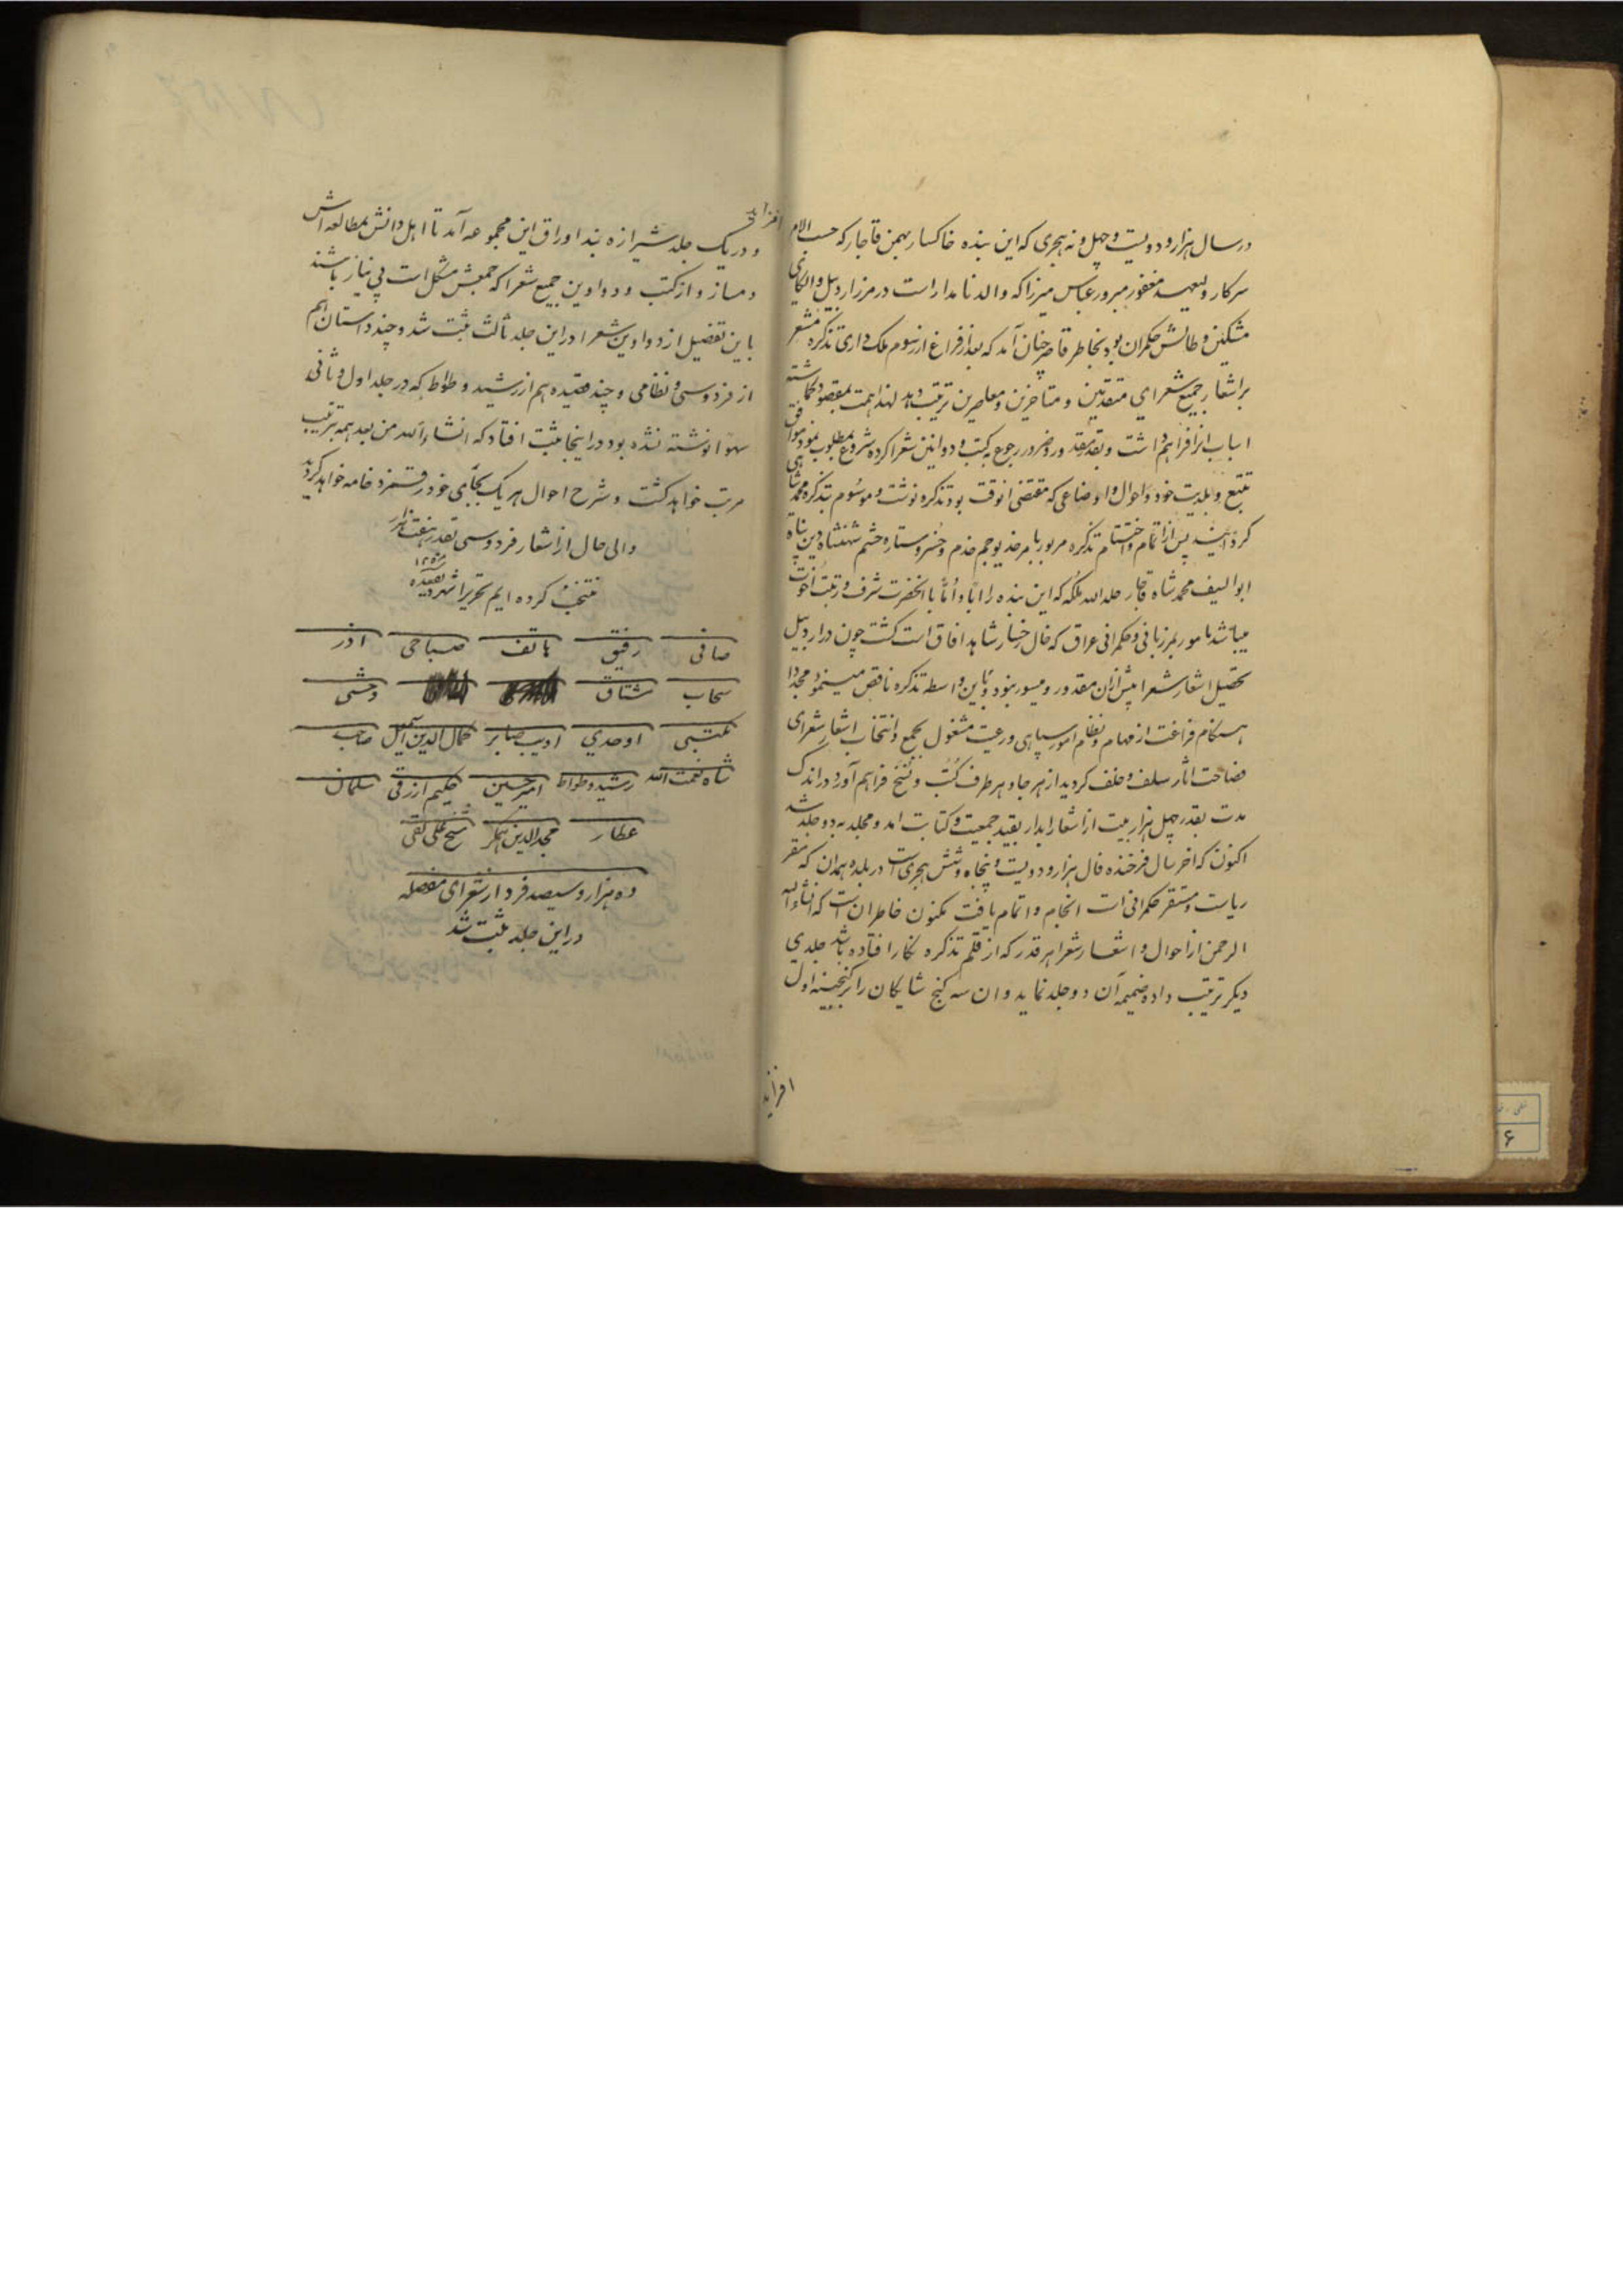 در سال هزار و دویست و چهل و نه هجری که این بنده خاکسار بهمن قاجار که حسب الامر
سرکار ولیعهد مغفور مبرور عباس میرزا که والد نامدار است در مرز اردبیل و الکای
مشکین و طالش حکمران بود بخاطر قاصر چنان آمد که بعد از فراغ از رسوم ملک داری تذکره مشعر
بر اشعار جمیع شعرای متقدمین و متاخرین و معاصرین ترتیب دهد لهذا همت بمقصود گماشته
اسباب انرا فراهم داشت و بقدر مقدور و ضرور رجوع به کتب و دواوین شعرا کرده شروع بمطلوب نمود موافق
تتبع و بلدیت خود و احوال و اوضاعی که مقتضی انوقت بود تذکره نوشت و موسوم بتذکره محمدشاهی
گردانید پس از اتمام و اختتام تذکره مزبور بامر خدیو جم خدم و خسرو ستاره حشم شهنشاه دین پناه
ابوالسیف محمد شاه قاجار خلد الله ملکه که این بنده را اباً و اُمّاً با انحضرت شرف و رتبت اخوت
میباشد مامور بمرزبانی و حکمرانی عراق که خال رخسار شاهد افاق است گشت چون در اردبیل
تحصیل اشعار شعرا بیش از ان مقدور و میسور نبود و باین واسطه تذکره ناقص مینمود مجددا
هنگام فراغت از مهام و نظام امور سپاهی و رعیت مشغول بجمع و انتخاب اشعار شعرای
فصاحت اثار سلف و خلف گردید از هر جا و هر طرف کُتُب و نُسَخ فراهم آورد در اندک
مدت بقدر چهل هزار بیت از اشعار ابدار بقید جمعیت و کتابت امد و مجلد به دو جلد شد
اکنون که اخر سال فرخنده فال هزار و دویست و پنجاه و شش هجری است در بلده همدان که مقر
ریاست و مستقر حکمرانی است انجام و اتمام یافت مکنون خاطر ان است که انشاء الله
الرحمن از احوال و اشعار شعرا هر قدر که از قلم تذکره نگار افتاده باشد جلدی
دیگر ترتیب داده ضمیمه آن دو جلد نماید و ان سه گنج شایگان را بر گنجینه اول
افزاید
افزاید
و در یک جلد شیرازه بند اوراق این مجموعه آمد تا اهل دانش بمطالعه اش
دمساز و از کتب و دواوین جمیع شعرا که جمعش مشکل است بی نیاز باشند
باین تفضیل از دواوین شعرا در این جلد ثالث ثبت شد و چند داستان هم
از فردوسی و نظامی و چند قصیده هم از رشید وطواط که در جلد اول و ثانی
سهوا نوشته نشده بود در اینجا ثبت افتاد که انشاء الله من بعد همه بترتیب
مرتب خواهد گشت و شرح احوال هر یک بجای خود رقمزد خامه خواهد گردید
والی حال از اشعار فردوسی بقدر هفت هزار
منتخب کرده ایم تحریرا شهر ذیقعده
۱۲۵۶
صافی رفیق هاتف صباحی اذر
سحاب مشتاق وحشی
مکتبی اوحدی ادیب صابر کمال الدین اسمعیل صاحب
شاه نعمت الله رشید وطواط امیر حسین حکیم ازرقی سلمان
عطار مجد الدین همگر شیخ علی نقی
ده هزار و سیصد فرد از شعرای مفصله
در این جلد ثبت شد
۶